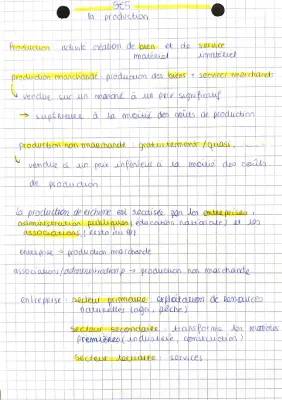 SES
la production
Production activité création de bien et de service
matériel immatériel
production marchande : production des biens + services marchands
vendue sur un marché à un prix significatif
→ supérieure à la moitié des coûts de production
production non marchande : gratuitement / quasi
vendue à un prix inférieur à la moitié des coûts
de production
la production de richesse est réalisée par les entreprises,
administration publiques (éducation nationale) et les
associations (resto du ❤)
entreprise → production marchande
association / administration p → production non marchande
entreprise : secteur primaire : exploitation de ressources
naturelles (agri, pêche)
secteur secondaire : transforme les matières
premières (industrie, construction)
secteur tertiaire : services